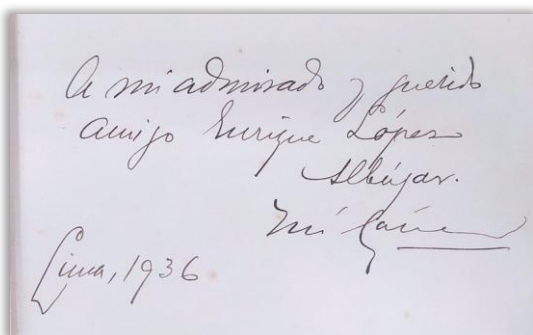 A mi admirado y querido
amigo Enrique López
Albújar.
Lima, 1936